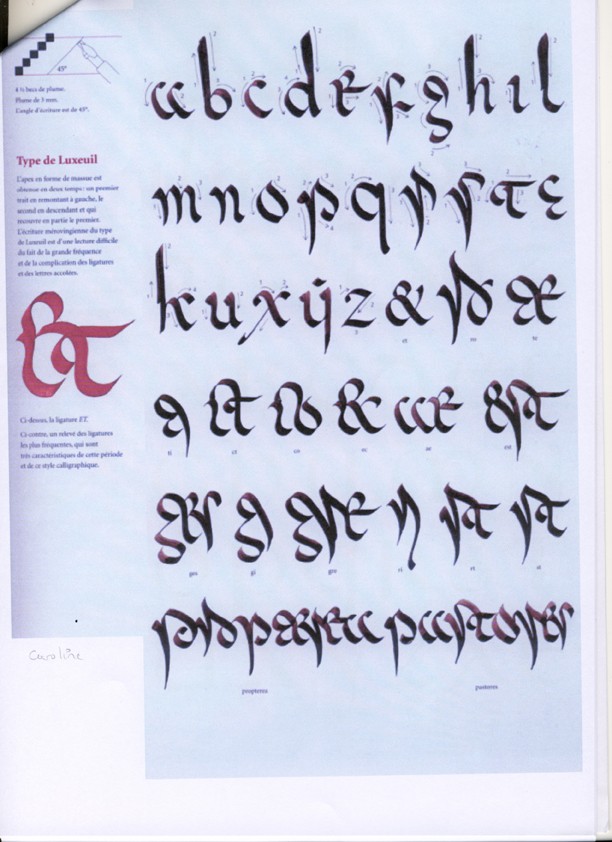 45°
4 ½ becs de plume.
Plume de 3 mm.
L'angle d'écriture est de 45°.
Type de Luxeuil
L'apex en forme de massue est
obtenue en deux temps : un premier
trait en remontant à gauche, le
second en descendant et qui
recouvre en partie le premier.
L'écriture mérovingienne du type
de Luxeuil est d'une lecture difficile
du fait de la grande fréquence
et de la complication des ligatures
et des lettres accolées.
Ci-dessus, la ligature ET.
Ci-contre, un relevé des ligatures
les plus fréquentes, qui sont
très caractéristiques de cette période
et de ce style calligraphique.
Caroline
a b c d e f g h i l
m n o p q r s t e
k u x ý z & ro te
et ro te
ti ct co ec ae est
ti ct co ec ae est
ges gi gre ri rt st
ges gi gre ri rt
propterea pastores
propterea pastores